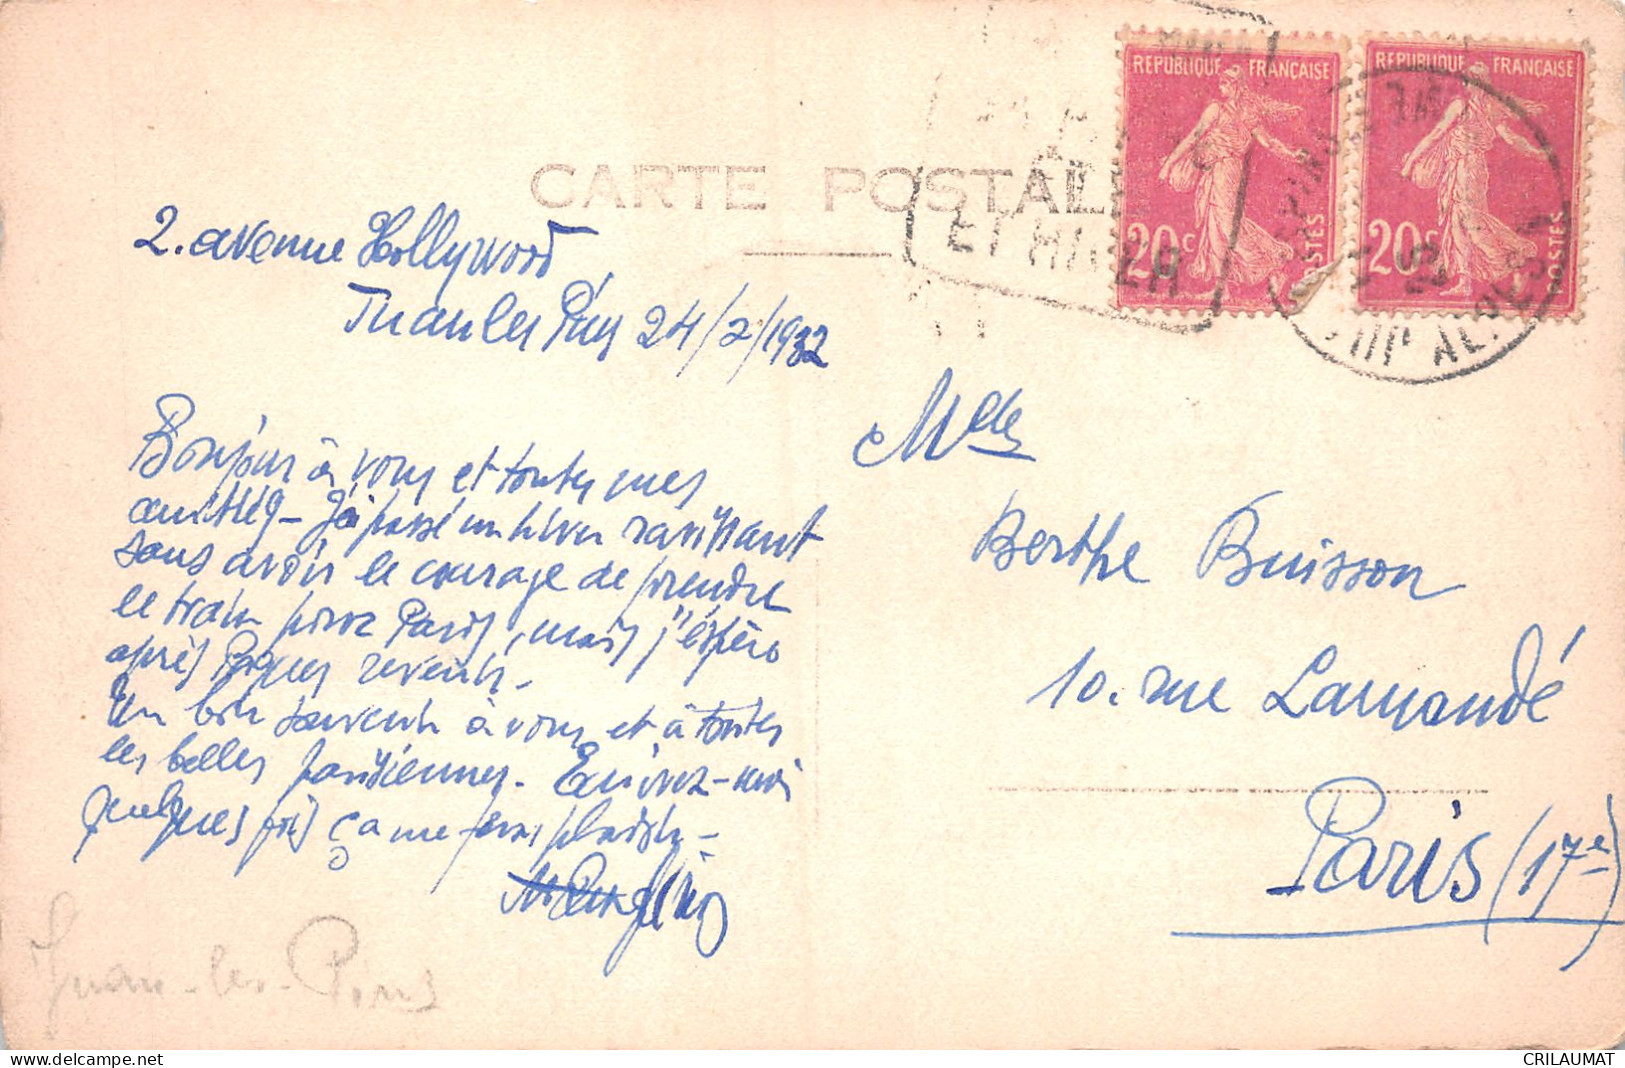 CARTE POSTALE
RÉPUBLIQUE FRANÇAISE
20c POSTES
RÉPUBLIQUE FRANÇAISE
20c POSTES
ET HIVER
ALPES
2. avenue Hollywood
Juan les Pins 24/2/1932
Bonjour à vous et toutes mes
amitiés – J'ai passé un hiver ravissant
sans avoir le courage de prendre
le train pour Paris, mais j'espère
après Pâques revenir.
Un bon souvenir à vous et à toutes
les belles parisiennes. Ecrivez-moi
quelques fois ça me fera plaisir –
Melle
Berthe Buisson
10. rue Lamandé
Paris (17e)
Juan-les-Pins
www.delcampe.net
CRILAUMAT